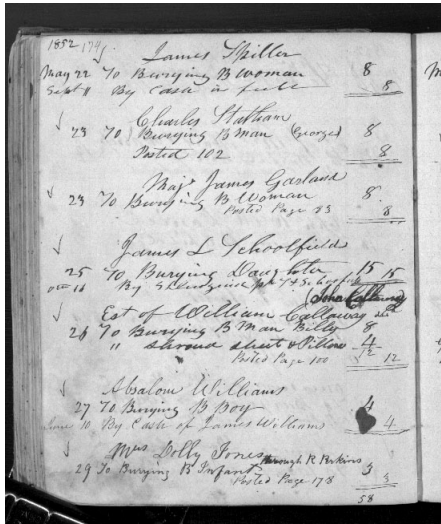 1852 174
James Spiller
May 22 To Burying B Woman 8
Sept 11 By Cash in full 8
Charles Statham
23 To Burying B Man (George) 8
Posted 102 8
Maj James Garland
23 To Burying B Woman 8
Posted Page 83 8
James L Schoolfield
25 To Burying Daughter 15 15
By
(John Callaway
Est of William Callaway
26 To Burying B Man Billy 8
" Shroud sheet & Pillow 4
Posted Page 100 12 12
Absalom Williams
27 To Burying B Boy 4
June 10 By Cash of James Williams 4
Mrs Dolly Jones through R Perkins
29 To Burying B Infant 3
Posted Page 178 3
58